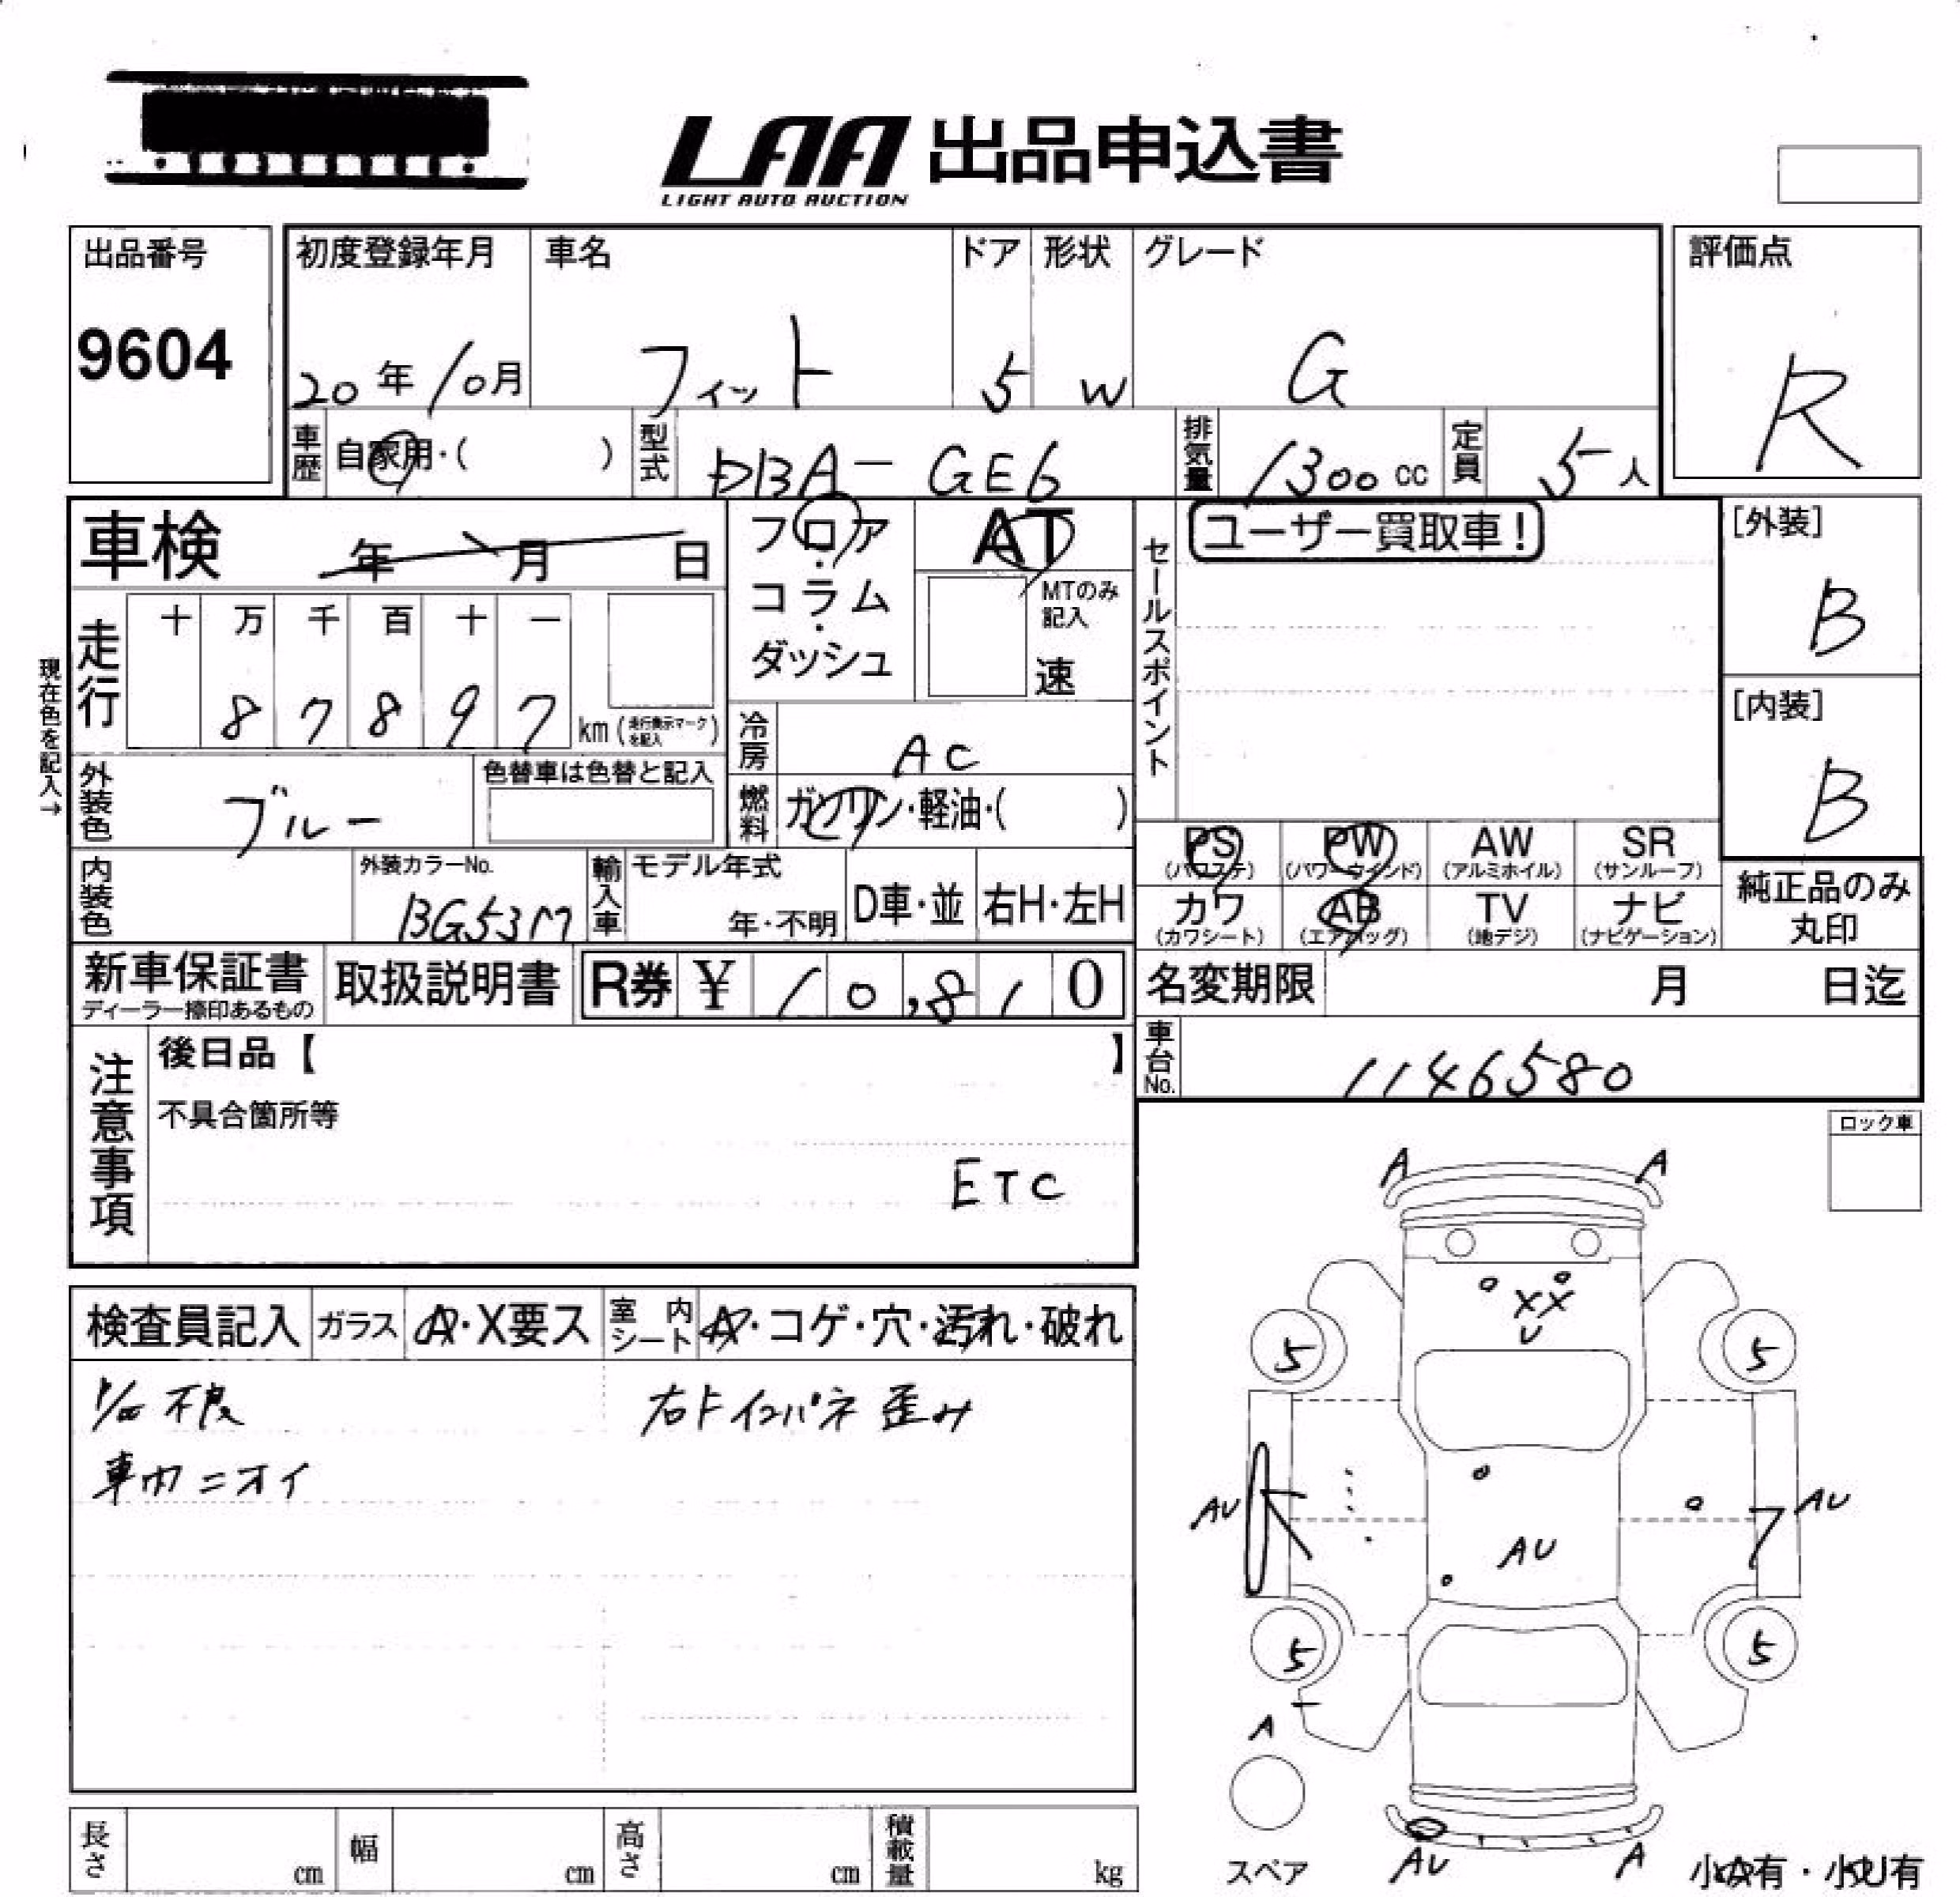 LAA 出品申込書
LIGHT AUTO AUCTION
出品番号
9604
初度登録年月 車名 ドア 形状 グレード
20年10月 フィット 5 W G
評価点
R
車歴 自家用・( ) 型式 DBA-GE6 排気量 1300cc 定員 5人
車検 年 月 日
フロア・コラム・ダッシュ
AT
MTのみ記入
速
セールスポイント
ユーザー買取車!
[外装]
B
[内装]
B
現在色を記入→
走行
十 万 千 百 十 一
8 7 8 9 7 km (走行表示マークを記入)
冷房 AC
燃料 ガソリン・軽油・( )
外装色 ブルー
色替車は色替と記入
内装色
外装カラーNo.
BG53M
輸入車 モデル年式
年・不明 D車・並 右H・左H
PS (パワステ) PW (パワーウインド) AW (アルミホイル) SR (サンルーフ)
カワ (カワシート) AB (エアバッグ) TV (地デジ) ナビ (ナビゲーション)
純正品のみ
丸印
新車保証書
ディーラー捺印あるもの
取扱説明書
R券 ¥ 10,810
名変期限 月 日迄
車台No. 1146580
注意事項
後日品【 】
不具合箇所等
ETC
ロック車
検査員記入 ガラス A・X要ス 室内シート A・コゲ・穴・汚れ・破れ
不良
右ト インパネ歪み
車内ニオイ
A A
XX
U
5 5
AU AU
AU
5 5
A
スペア
AU A
小A有・小U有
長さ cm 幅 cm 高さ cm 積載量 kg